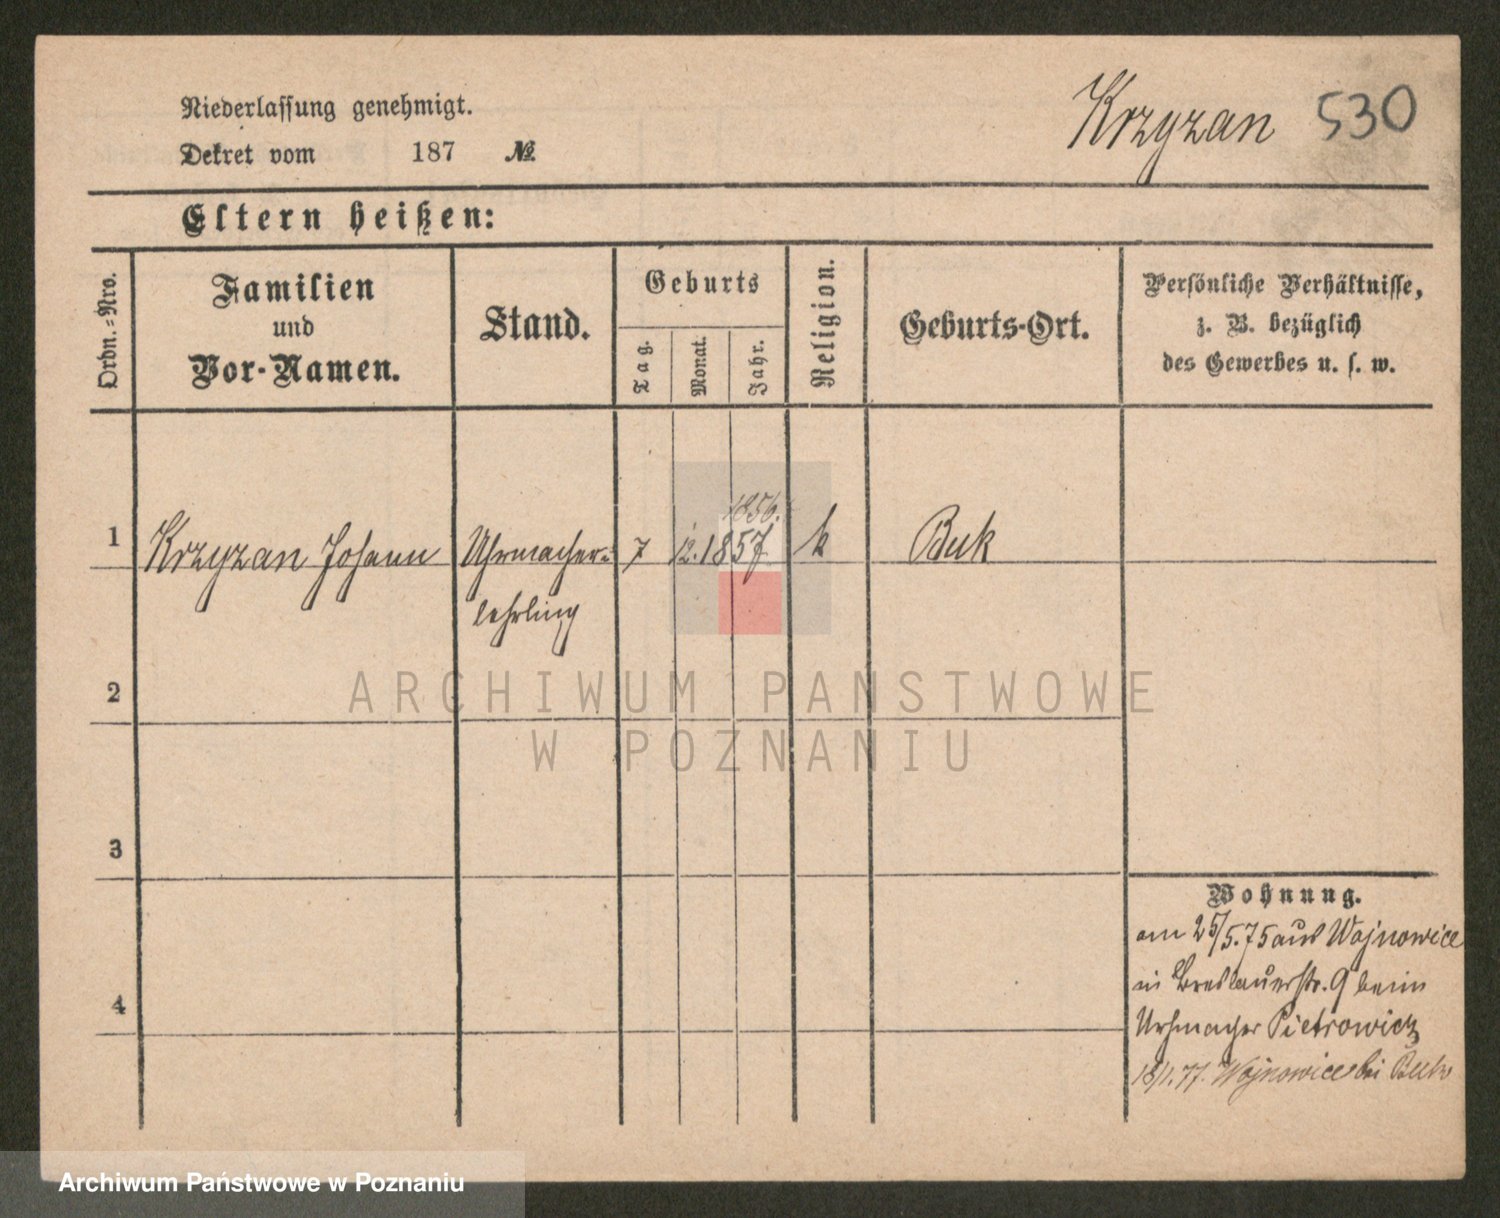 Niederlassung genehmigt.
Krzyzan 530
Dekret vom 187 №
Eltern heißen:
Ordn.=Nro.
Familien
und
Vor-Namen.
Stand.
Geburts
Tag.
Monat.
Jahr.
Religion.
Geburts-Ort.
Persönliche Verhältnisse,
z. B. bezüglich
des Gewerbes u. s. w.
1856.
1 Krzyzan Johann Uhrmacher= 7 12. 1857 k Buk
lehrling
2
3
4
Wohnung.
am 25/5.75 aus Wojnowice
in Breslauerstr. 9 beim
Uhrmacher Pietrowicz
18/1.77. Wojnowice bei Buk
ARCHIWUM PAŃSTWOWE
W POZNANIU
Archiwum Państwowe w Poznaniu